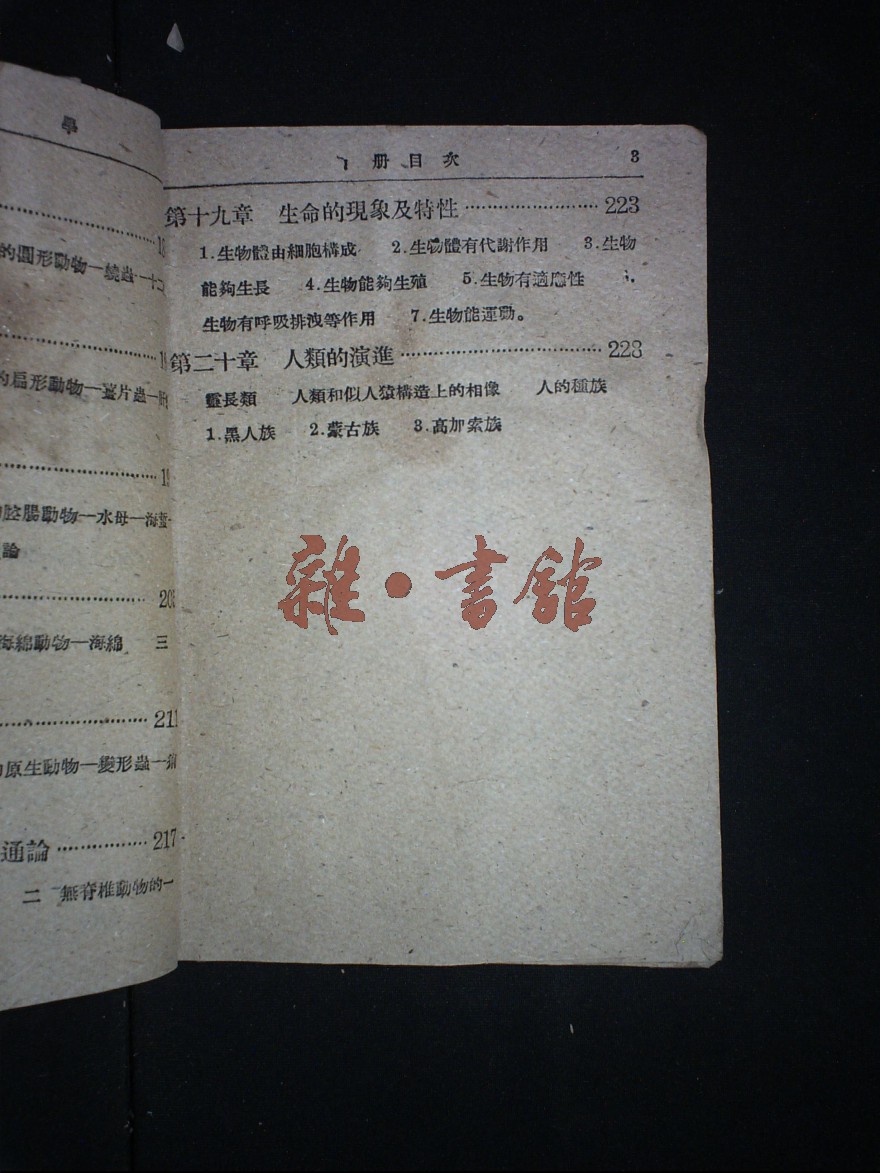 學
的圓形動物—蟯蟲—十二
的扁形動物—薑片蟲—肝
腔腸動物—水母—海蜇
論
海綿動物—海綿 三
211
原生動物—變形蟲—
通論 217
二 無脊椎動物的一
册目次 3
第十九章 生命的現象及特性 223
1.生物體由細胞構成 2.生物體有代謝作用 3.生物
能夠生長 4.生物能夠生殖 5.生物有適應性
生物有呼吸排洩等作用 7.生物能運動。
第二十章 人類的演進 228
靈長類 人類和似人猿構造上的相像 人的種族
1.黑人族 2.蒙古族 3.高加索族
雜·書館